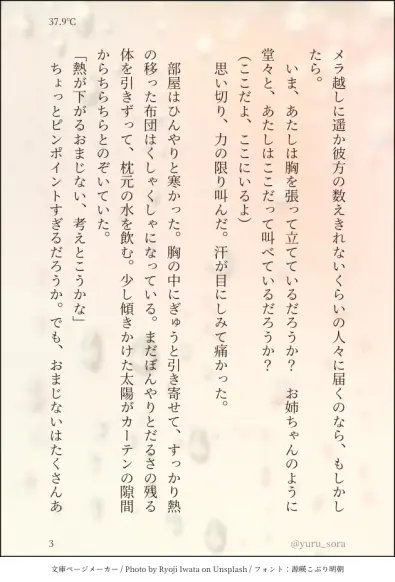 37.9℃
メラ越しに遥か彼方の数えきれないくらいの人々に届くのなら、もしかし
たら。
いま、あたしは胸を張って立てているだろうか？　お姉ちゃんのように
堂々と、あたしはここだって叫べているだろうか？
（ここだよ、ここにいるよ）
思い切り、力の限り叫んだ。汗が目にしみて痛かった。
部屋はひんやりと寒かった。胸の中にぎゅうと引き寄せて、すっかり熱
の移った布団はくしゃくしゃになっている。まだぼんやりとだるさの残る
体を引きずって、枕元の水を飲む。少し傾きかけた太陽がカーテンの隙間
からちらちらとのぞいていた。
「熱が下がるおまじない、考えとこうかな」
ちょっとピンポイントすぎるだろうか。でも、おまじないはたくさんあ
3
@yuru_sora
文庫ページメーカー / Photo by Ryoji Iwata on Unsplash / フォント：源暎こぶり明朝